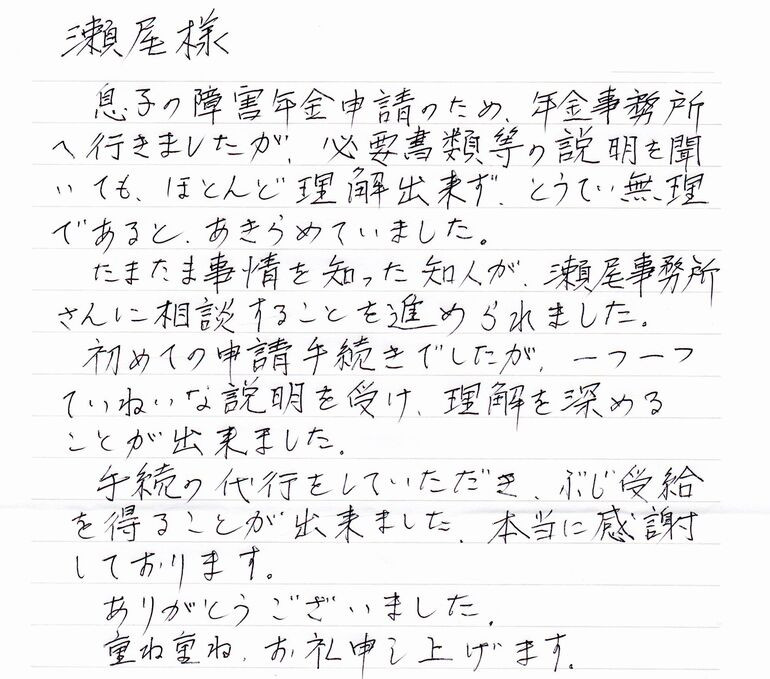 瀬尾様
息子の障害年金申請のため、年金事務所
へ行きましたが、必要書類等の説明を聞
いても、ほとんど理解出来ず、とうてい無理
であると、あきらめていました。
たまたま事情を知った知人が、瀬尾事務所
さんに相談することを進められました。
初めての申請手続きでしたが、一つ一つ
ていねいな説明を受け、理解を深める
ことが出来ました。
手続の代行をしていただき、ぶじ受給
を得ることが出来ました。本当に感謝
しております。
ありがとうございました。
重ね重ね、お礼申し上げます。